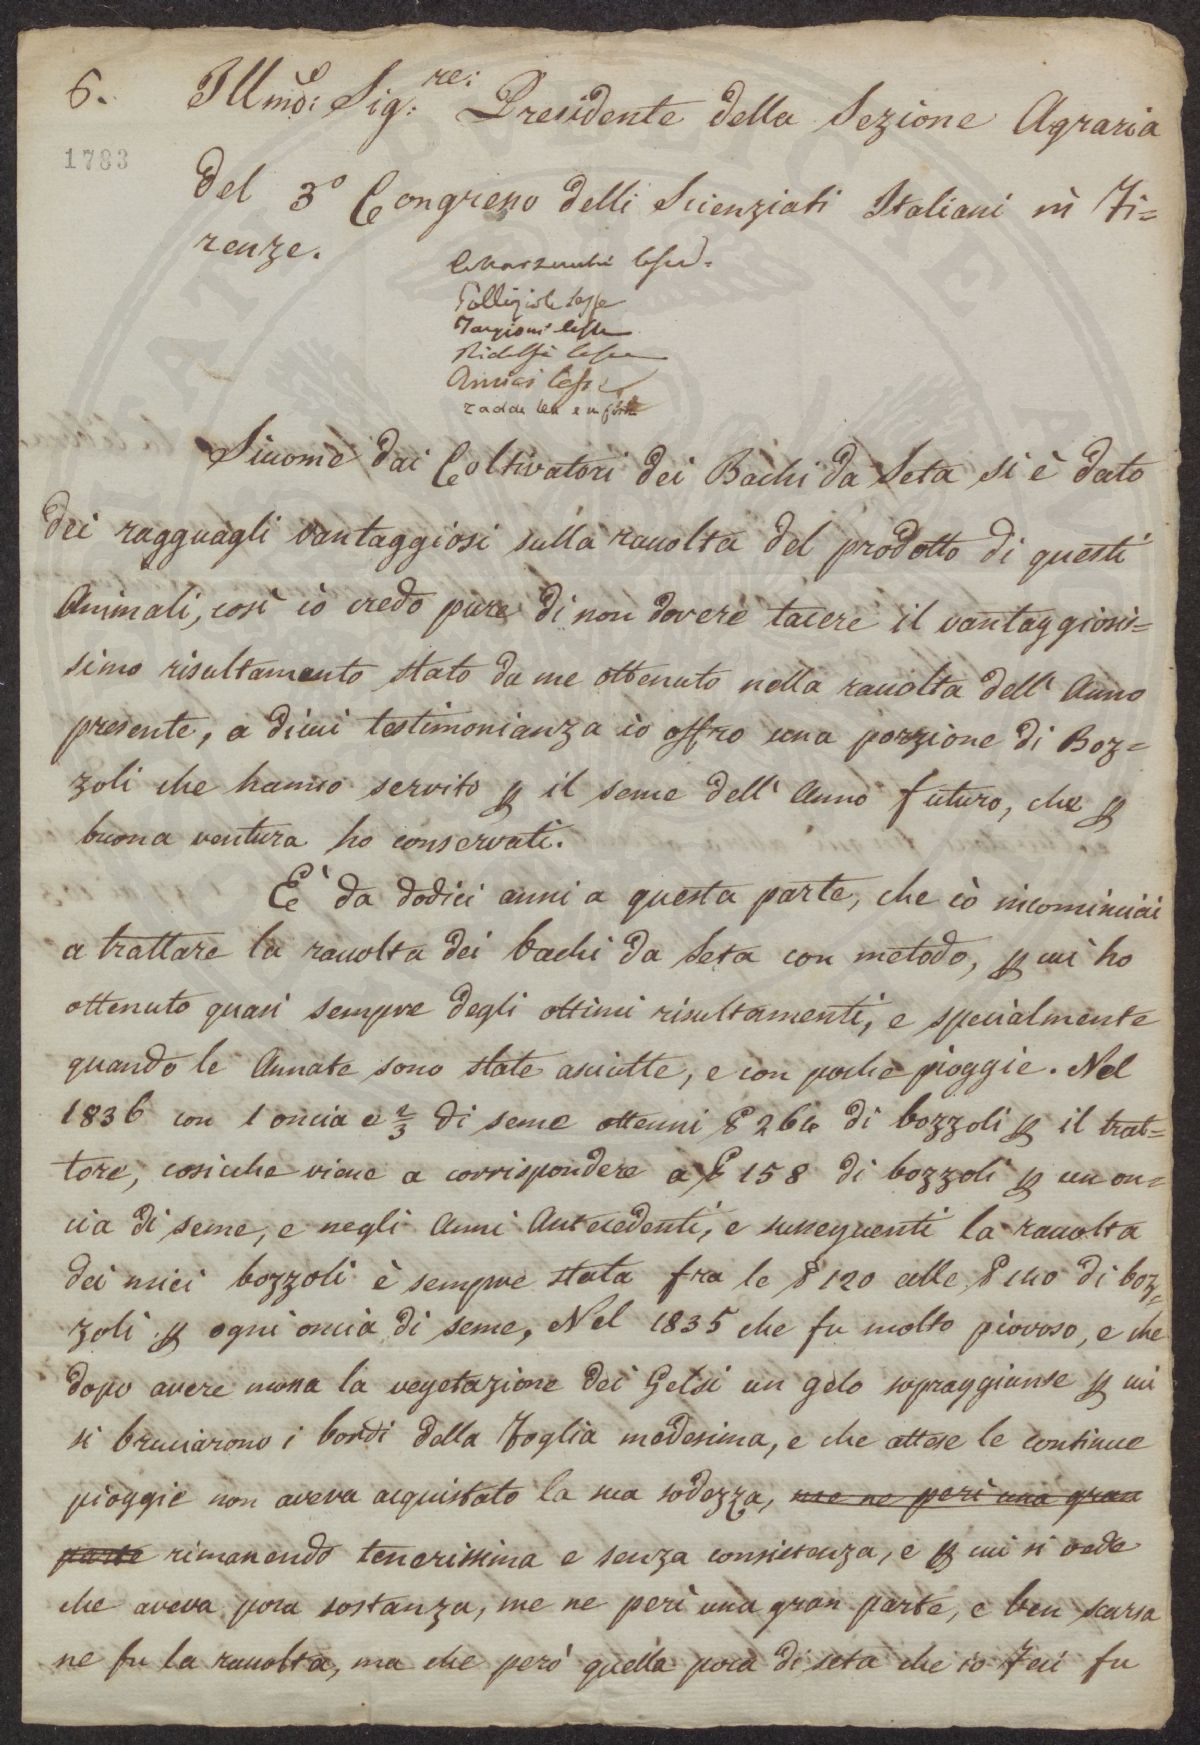 6.
Illmo: Sig:re: Presidente della Sezione Agraria
1783
del 3º Congresso delli Scienziati Italiani in Fi=
renze.
Targioni lesse
Ridolfi lesse
Amici lesse
Siccome dai Coltivatori dei Bachi da Seta si è dato
dei ragguagli vantaggiosi sulla raccolta del prodotto di questi
Animali, così io credo pure di non dovere tacere il vantaggiosis=
simo risultamento stato da me ottenuto nella raccolta dell' Anno
presente, a dicui testimonianza io offro una porzione di Boz=
zoli che hanno servito ꝑ il seme dell' Anno futuro, che ꝑ
buona ventura ho conservati.
È da dodici anni a questa parte, che io incominciai
a trattare la raccolta dei bachi da Seta con metodo, ꝑ cui ho
ottenuto quasi sempre degli ottimi risultamenti, e specialmente
quando le Annate sono state asciutte, e con poche pioggie. Nel
1836 con 1 oncia e 2/3 di seme ottenni ₤ 264 di bozzoli ꝑ il trat=
tore, cosicche viene a corrispondere a ₤ 158 di bozzoli ꝑ un on=
cia di seme, e negli Anni Antecedenti, e susseguenti la raccolta
dei miei bozzoli è sempre stata fra le ₤ 120 alle ₤ di boz=
zoli ꝑ ogni oncia di seme, Nel 1835 che fu molto piovoso, e che
dopo avere mossa la vegetazione dei Gelsi un gelo sopraggiunse ꝑ cui
si bruciarono i bordi della Foglia medesima, e che attese le continue
pioggie non aveva acquistato la sua sodezza, me ne perì una gran
parte rimanendo tenerissima e senza consistenza, e ꝑ cui si vede
che aveva poca sostanza, me ne perì una gran parte, e ben scarsa
ne fu la raccolta, ma che però quella poca di seta che io Feci fu